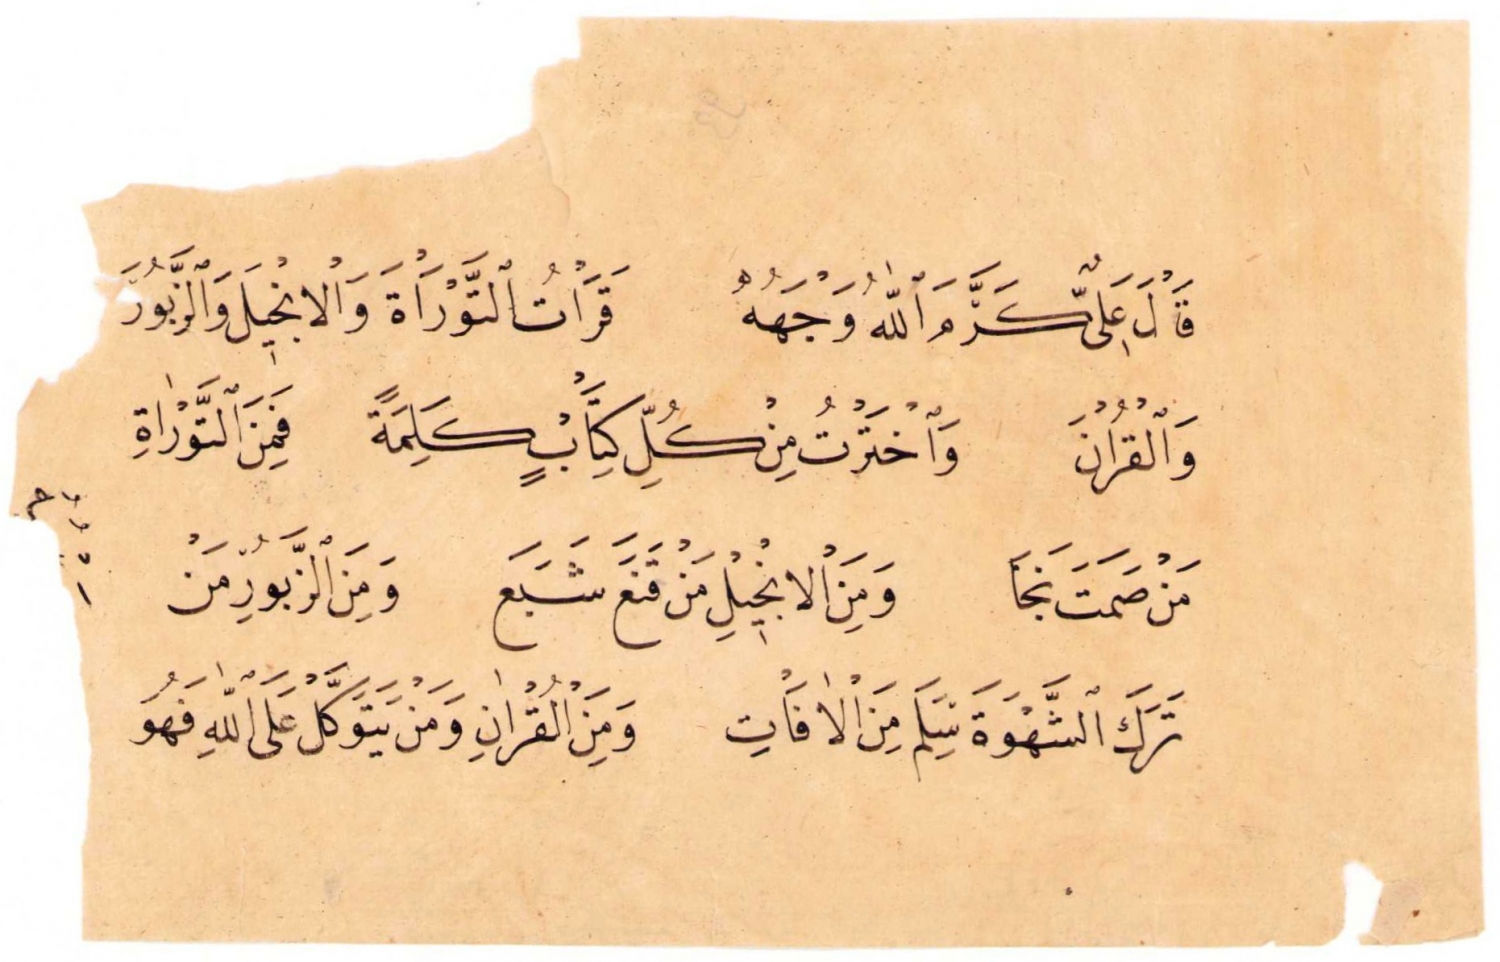 قَالَ عَلِىٌّ كَرَّمَ ٱللّٰهُ وَجْهَهُ قَرَاْتُ ٱلتَّوْرَاْةَ وَٱلْاِنْجِيْلَ وَٱلزَّبُوْرَ
وَٱلْقُرْاٰنَ وَٱخْتَرْتُ مِنْ كُلِّ كِتَابٍ كَلِمَةً فَمِنَ ٱلتَّوْرٰاةِ
مَنْ صَمَتَ نَجَا وَمِنَ ٱلْاِنْجِيْلِ مَنْ قَنَعَ شَبَعَ وَمِنَ ٱلزَّبُوْرِ مَنْ
تَرَكَ ٱلشَّهْوَةَ سَلِمَ مِنَ ٱلْاٰفَاتِ وَمِنَ ٱلْقُرْاٰنِ وَمَنْ يَتَوَكَّلْ عَلَى ٱللّٰهِ فَهُوَ